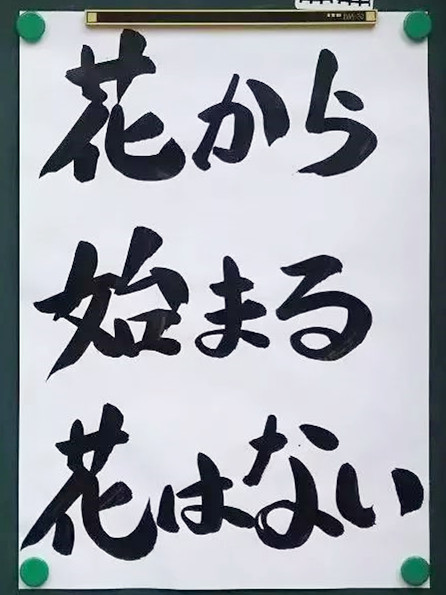 花から
始まる
花はない